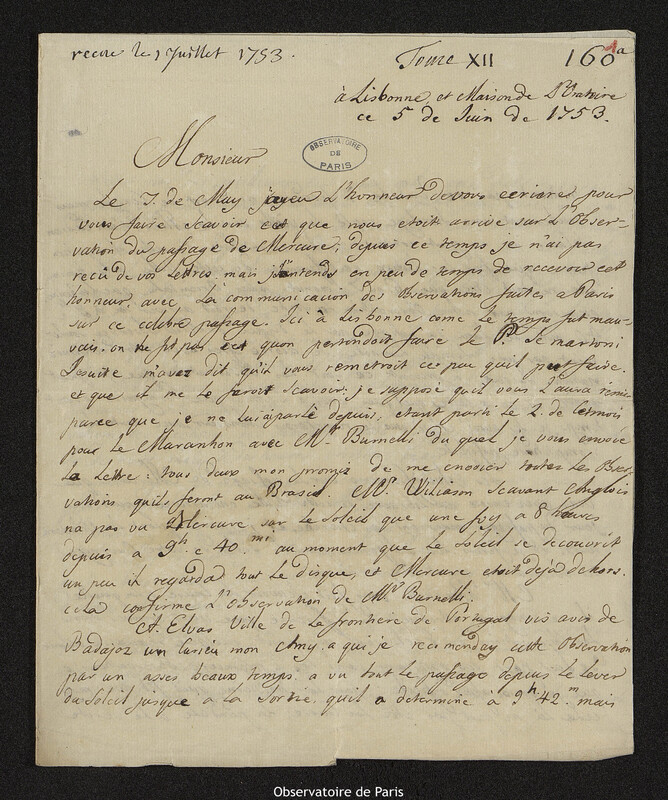 recue le 1 Juillet 1753.
Tome XII 160a
à Lisbonne, et Maison de L'Oratoire
ce 5 de Juin de 1753.
OBSERVATOIRE
DE
PARIS
Monsieur
Le 7. de May j'ayeu L'honneur de vous ecrire, pour
vous faire scavoir cet que nous etoit arrivé sur L'Obser-
vation du passage de Mercure; depuis ce temps je n'ai pas
recû de vos Lettres, mais j'attends en peu de temps de recevoir cet
honneur, avec La communicacion des Observations faites a Paris
sur ce celebre passage. Ici à Lisbonne come le temps fut mau-
vais, on ne fit pas cet quon pertendoit faire le P. Se martoni
Jesuite m'avez dit qu'il vous remetroit ce pau quil put faire.
et que il me le feroit scavoir: je suppose quil vous L'aura remis
parce que je ne lui ai parlé depuis, etant parti le 2. de Cet mois
pour le Maranhon avec Mr. Burnelli du quel je vous envoie
la Lettre: tous deux mon promiz de me enovier toutes les Obser-
vations quils feront au Brasil. Mr. Wiliason scavant Anglois
na pas vu Mercure sur le Soleil que une foy a 8 heures
depuis a 9h. e 40.mi au moment que le Soleil se decouvrit
un peu il regarda tout le disque, et Mercure etoit dejà dehors.
cela confirme L'Observation de Mr. Burnelli.
A Elvas Ville de la frontiere de Portugal vis avis de
Badajoz un mon Amy, a qui je recomenday cette Observation
par un asses beau temps, a vu tout le passage depuis le lever
du Soleil jusque a la Sortie, quil a determine a 9h. 42.m mais
Observatoire de Paris